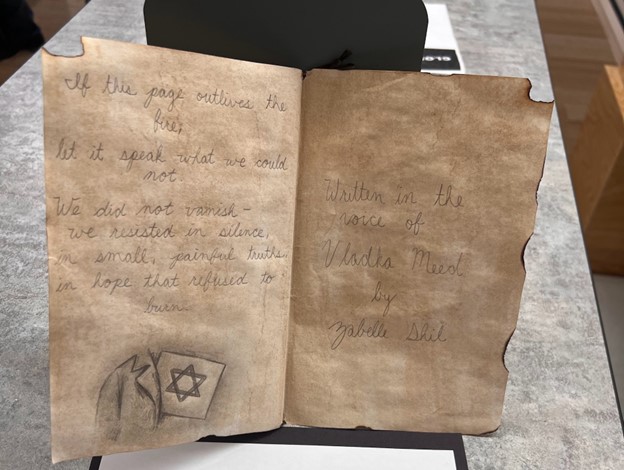 If this page outlives the
fire,
let it speak what we could
not.
We did not vanish –
we resisted in silence,
in small, painful truths,
in hope that refused to
burn.
Written in the
voice of
Vladka Meed
by
Zabelle Shil